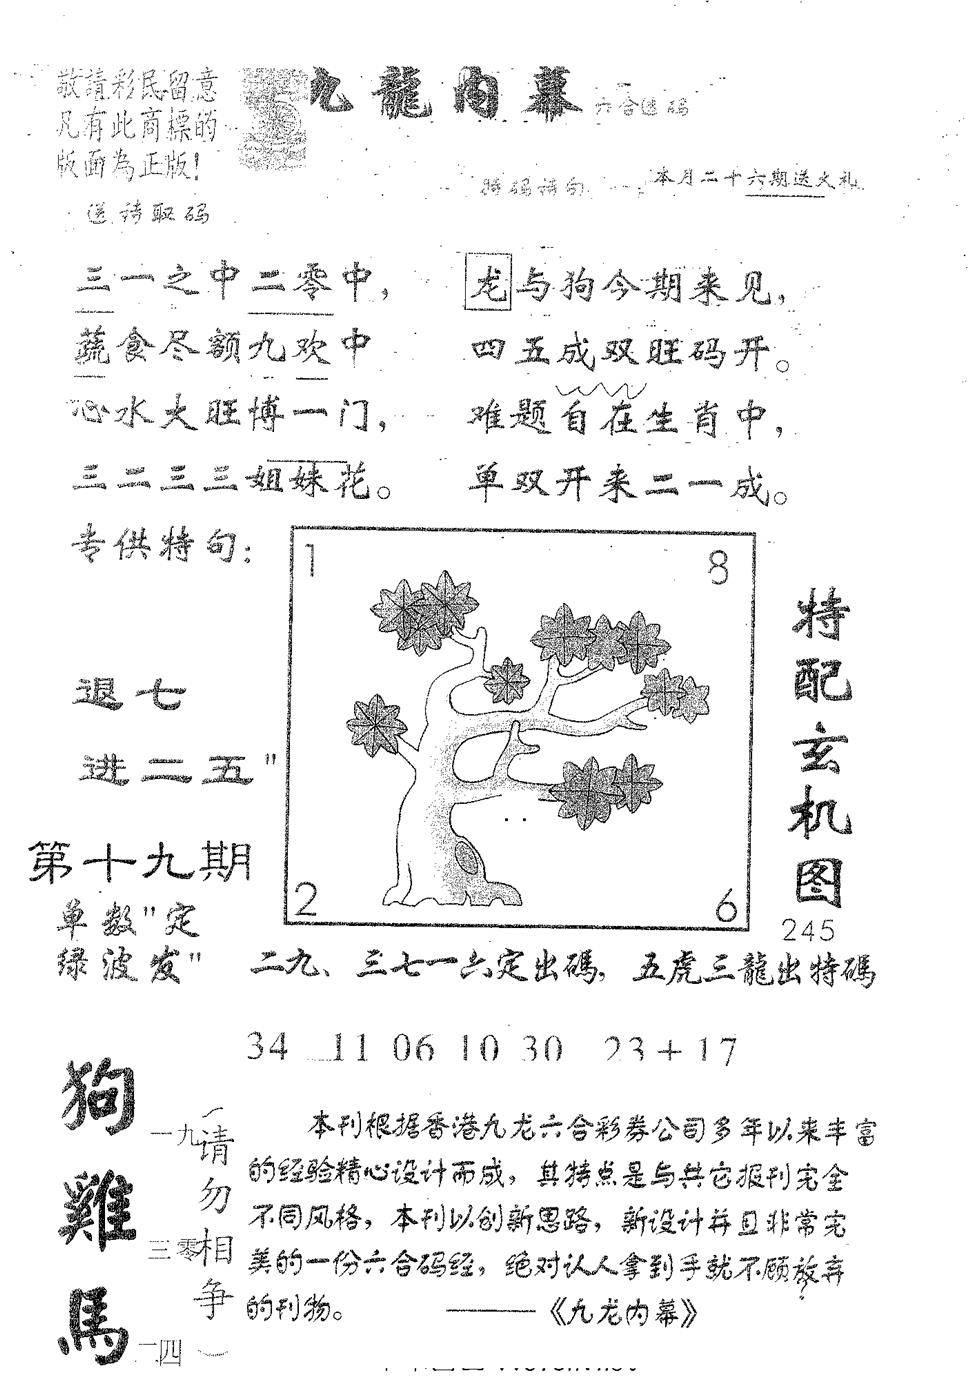 敬請彩民留意
凡有此商標的
版面為正版!
九龍內幕 六合透码
特码诗句 本月二十六期送大礼
送诗取码
三一之中二零中,
蔬食尽额九欢中
心水大旺博一门,
三二三三姐妹花。
龙与狗今期来见,
四五成双旺码开。
难题自在生肖中,
单双开来二一成。
专供特句:
退七
进二五"
第十九期
单数"定
绿波发"
1 8
2 6
特配玄机图
245
二九、三七一六定出碼, 五虎三龍出特碼
34 11 06 10 30 23+17
狗 一九
雞 三零
馬 一四
(请勿相争)
本刊根据香港九龙六合彩券公司多年以来丰富
的经验精心设计而成,其特点是与其它报刊完全
不同风格,本刊以创新思路,新设计并且非常完
美的一份六合码经,绝对认人拿到手就不顾放弃
的刊物。 ———《九龙内幕》